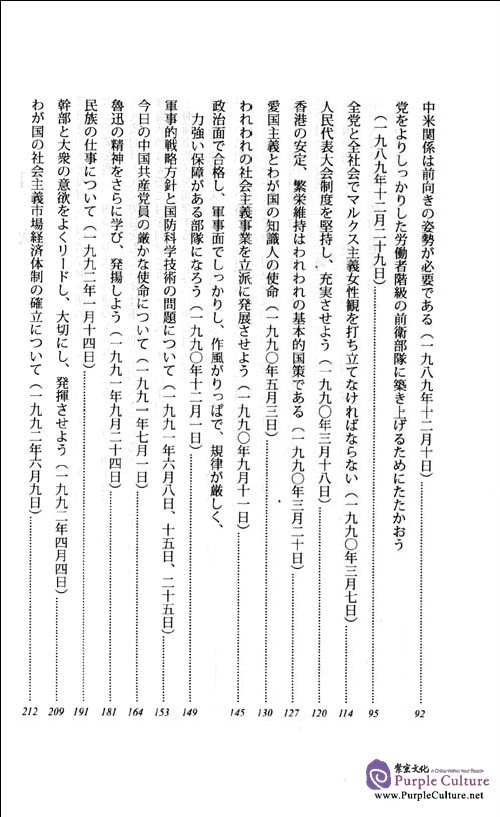 中米関係は前向きの姿勢が必要である（一九八九年十二月十日）……92
党をよりしっかりした労働者階級の前衛部隊に築き上げるためにたたかおう
（一九八九年十二月二十九日）……95
全党と全社会でマルクス主義女性観を打ち立てなければならない（一九九〇年三月七日）……114
人民代表大会制度を堅持し、充実させよう（一九九〇年三月十八日）……120
香港の安定、繁栄維持はわれわれの基本的国策である（一九九〇年三月二十日）……127
愛国主義とわが国の知識人の使命（一九九〇年五月三日）……130
われわれの社会主義事業を立派に発展させよう（一九九〇年九月十一日）……145
政治面で合格し、軍事面でしっかりし、作風がりっぱで、規律が厳しく、
力強い保障がある部隊になろう（一九九〇年十二月一日）……149
軍事的戦略方針と国防科学技術の問題について（一九九一年六月八日、十五日、二十五日）……153
今日の中国共産党員の厳かな使命について（一九九一年七月一日）……164
魯迅の精神をさらに学び、発揚しよう（一九九一年九月二十四日）……181
民族の仕事について（一九九二年一月十四日）……191
幹部と大衆の意欲をよくリードし、大切にし、発揮させよう（一九九二年四月四日）……209
わが国の社会主義市場経済体制の確立について（一九九二年六月九日）……212
紫室文化 A China Walker Your Reach
Purple Culture
www.PurpleCulture.net